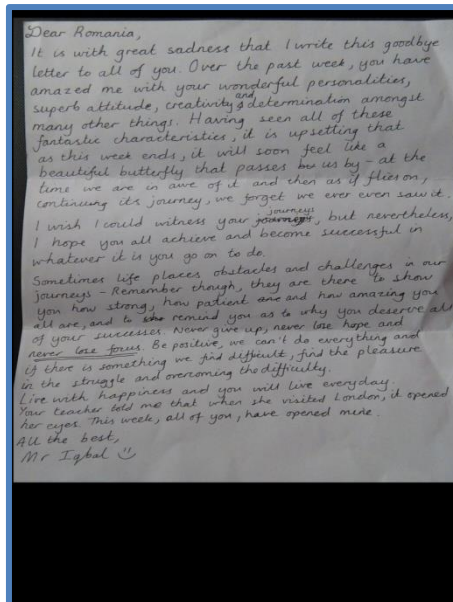 Dear Romania,
It is with great sadness that I write this goodbye
letter to all of you. Over the past week, you have
amazed me with your wonderful personalities,
superb attitude, creativity and determination amongst
many other things. Having seen all of these
fantastic characteristics, it is upsetting that
as this week ends, it will soon feel like a
beautiful butterfly that passes us by - at the
time we are in awe of it and then as it flies on,
continuing its journey, we forget we ever even saw it.
I wish I could witness your journeys, but nevertheless,
I hope you all achieve and become successful in
whatever it is you go on to do.
Sometimes life places obstacles and challenges in our
journeys - Remember though, they are there to show
you how strong, how patient and how amazing you
all are, and to remind you as to why you deserve all
of your successes. Never give up, never lose hope and
never lose focus. Be positive, we can't do everything and
if there is something we find difficult, find the pleasure
in the struggle and overcoming the difficulty.
Live with happiness and you will live everyday.
Your teacher told me that when she visited London, it opened
her eyes. This week, all of you, have opened mine.
All the best,
Mr Iqbal